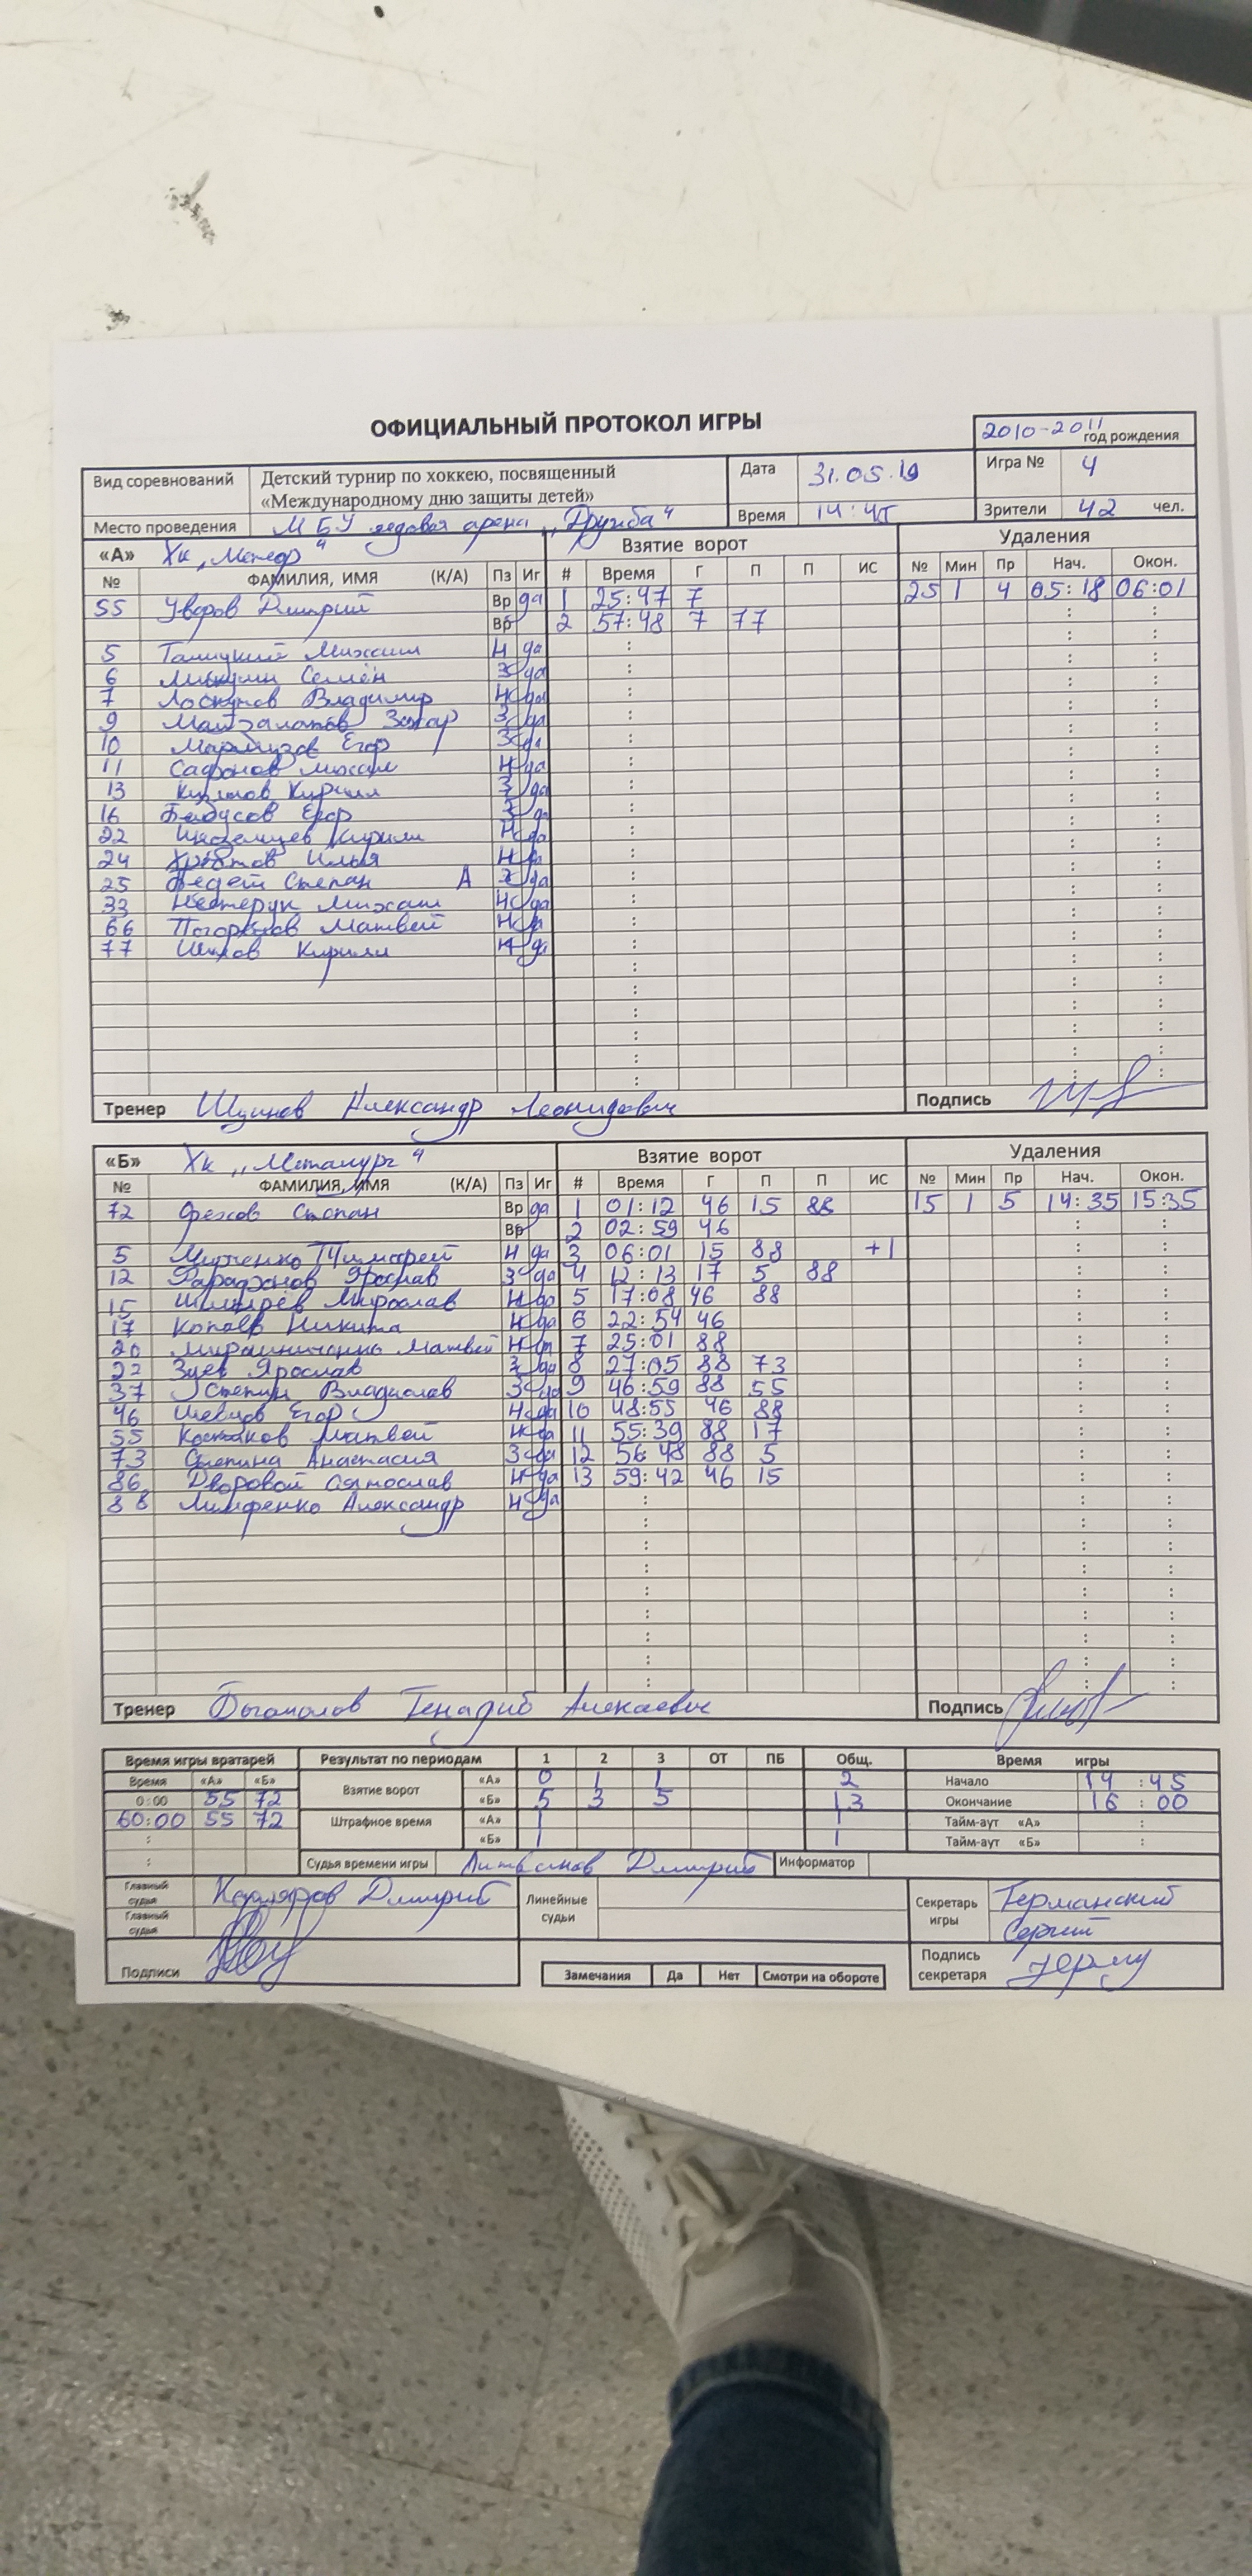 ОФИЦИАЛЬНЫЙ ПРОТОКОЛ ИГРЫ
2010-2011 год рождения
Вид соревнований Детский турнир по хоккею, посвященный «Международному дню защиты детей» Дата 31.05.19 Игра № 4
Место проведения МБУ ледовая арена "Дружба" Время 14:45 Зрители 42 чел.
«А» Хк "Метеор" Взятие ворот Удаления
№ ФАМИЛИЯ, ИМЯ (К/А) Пз Иг # Время Г П П ИС № Мин Пр Нач. Окон.
55 Уваров Дмитрий Вр да 1 25:47 7 25 1 4 05:18 06:01
Вр 2 57:48 7 77
5 Михаил Н да
6 Семён З да
7 Лоскутов Владимир Н да
9 Захар З да
10 Егор З да
11 Сафонов Михаил Н да
13 Кирилл З да
16 Егор З да
22 Иноземцев Кирилл Н да
24 Илья Н да
25 Степан А З да
33 Нестерук Михаил Н да
66 Матвей Н да
77 Кирилл Н да
Тренер Александр Леонидович Подпись
«Б» Хк "Металург" Взятие ворот Удаления
№ ФАМИЛИЯ, ИМЯ (К/А) Пз Иг # Время Г П П ИС № Мин Пр Нач. Окон.
72 Орехов Степан Вр да 1 01:12 46 15 88 15 1 5 14:35 15:35
Вр 2 02:59 46
5 Тимофей Н да 3 06:01 15 88 +1
12 Фарафонов Ярослав З да 4 12:13 17 5 88
15 Мирослав Н да 5 17:08 46 88
17 Никита Н да 6 22:54 46
20 Мирошниченко Матвей Н да 7 25:01 88
22 Зуев Ярослав З да 8 27:05 88 73
37 Степин Владислав З да 9 46:59 88 55
46 Шевцов Егор Н да 10 48:55 46 88
55 Матвей Н да 11 55:39 88 17
73 Степина Анастасия З да 12 56:48 88 5
86 Дворовой Святослав Н да 13 59:42 46 15
88 Александр Н да
Тренер Подпись
Время игры вратарей Результат по периодам 1 2 3 ОТ ПБ Общ. Время игры
Время «А» «Б» Взятие ворот «А» 0 1 1 2 Начало 14:45
0:00 55 72 «Б» 5 3 5 13 Окончание 16:00
60:00 55 72 Штрафное время «А» 1 1 Тайм-аут «А»
«Б» 1 1 Тайм-аут «Б»
Судья времени игры Литвинов Дмитрий Информатор
Главный судья Дмитрий Линейные судьи Секретарь игры Германский Сергей
Главный судья
Подписи Подпись секретаря
Замечания Да Нет Смотри на обороте